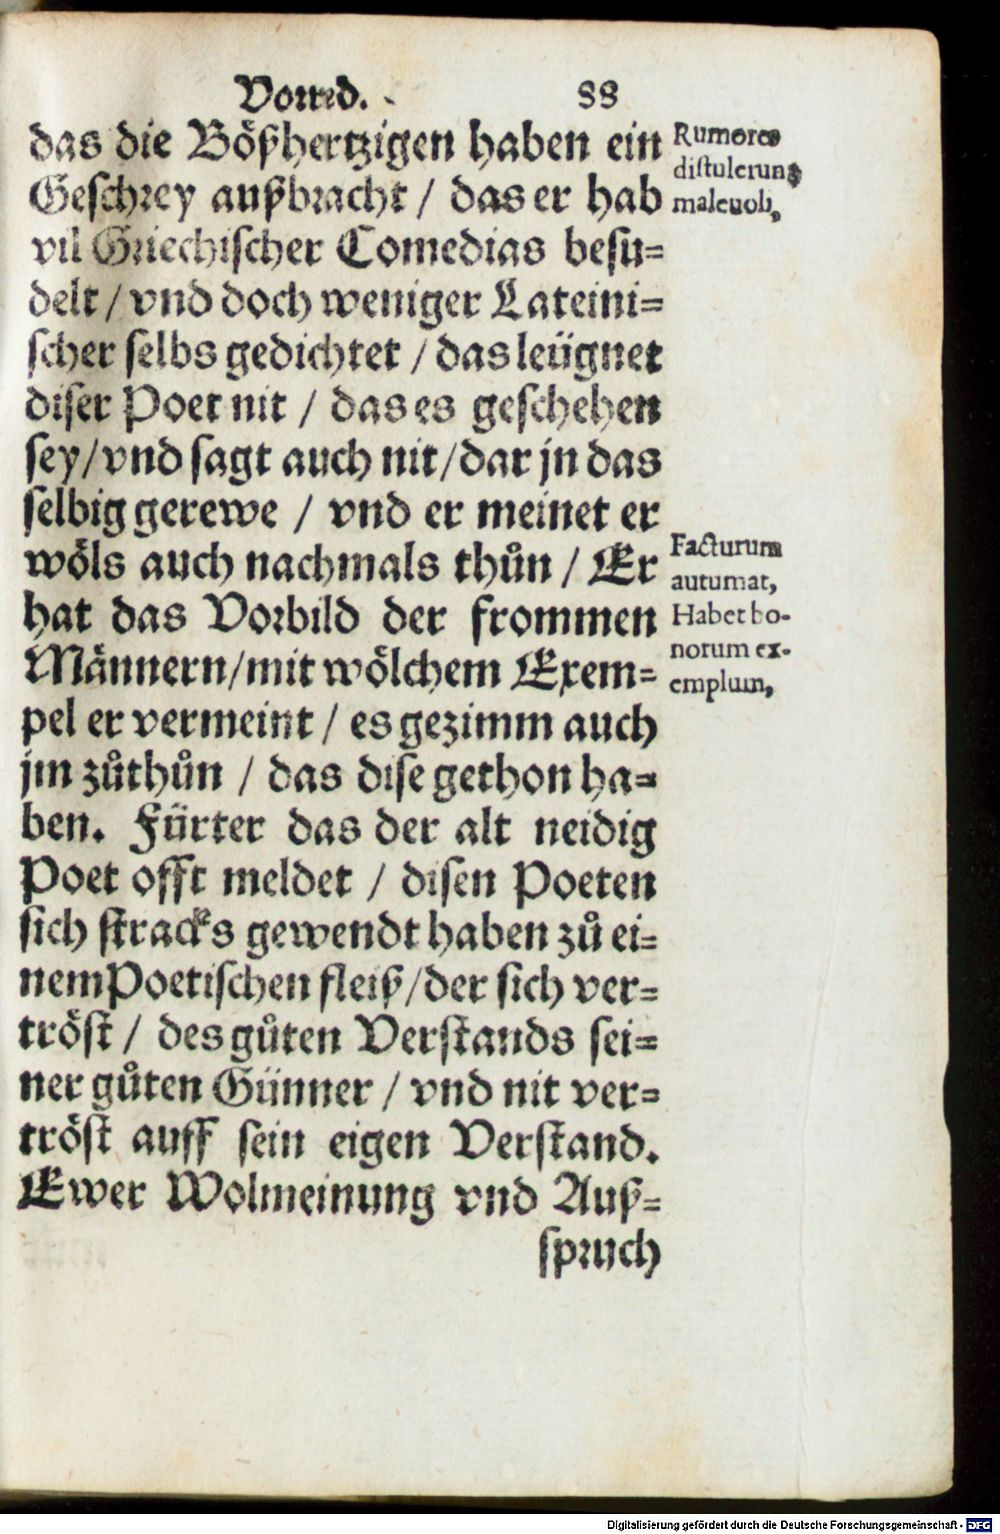 Vorred. 88
das die Bößhertzigen haben ein
Geschrey außbracht / das er hab
vil Griechischer Comedias besu=
delt / vnd doch weniger Lateini=
scher selbs gedichtet / das leügnet
diser Poet nit / das es geschehen
sey/vnd sagt auch nit/dar jn das
selbig gerewe / vnd er meinet er
wöls auch nachmals thůn / Er
hat das Vorbild der frommen
Männern/mit wölchem Exem=
pel er vermeint / es gezimm auch
jm zůthůn / das dise gethon ha=
ben. Fürter das der alt neidig
Poet offt meldet / disen Poeten
sich stracks gewendt haben zů ei=
nem Poetischen fleiß/der sich ver=
tröst / des gůten Verstands sei=
ner gůten Günner / vnd nit ver=
tröst auff sein eigen Verstand.
Ewer Wolmeinung vnd Auß=
spruch
Rumores
distulerunt
maleuoli,
Facturum
autumat,
Habet bo-
norum ex-
emplum,
Digitalisierung gefördert durch die Deutsche Forschungsgemeinschaft - DFG